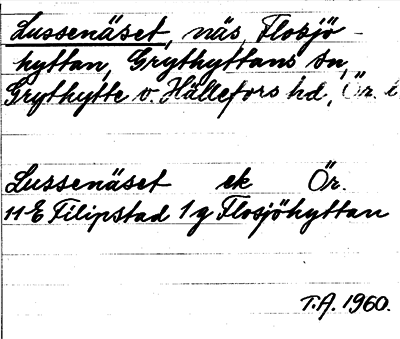 Lussenäset, näs, Flosjö-
hyttan, Grythyttans sn,
Grythytte o. Hällefors hd, Ör. l
Lussenäset ek Ör.
11E Filipstad 1g Flosjöhyttan
T.A. 1960.